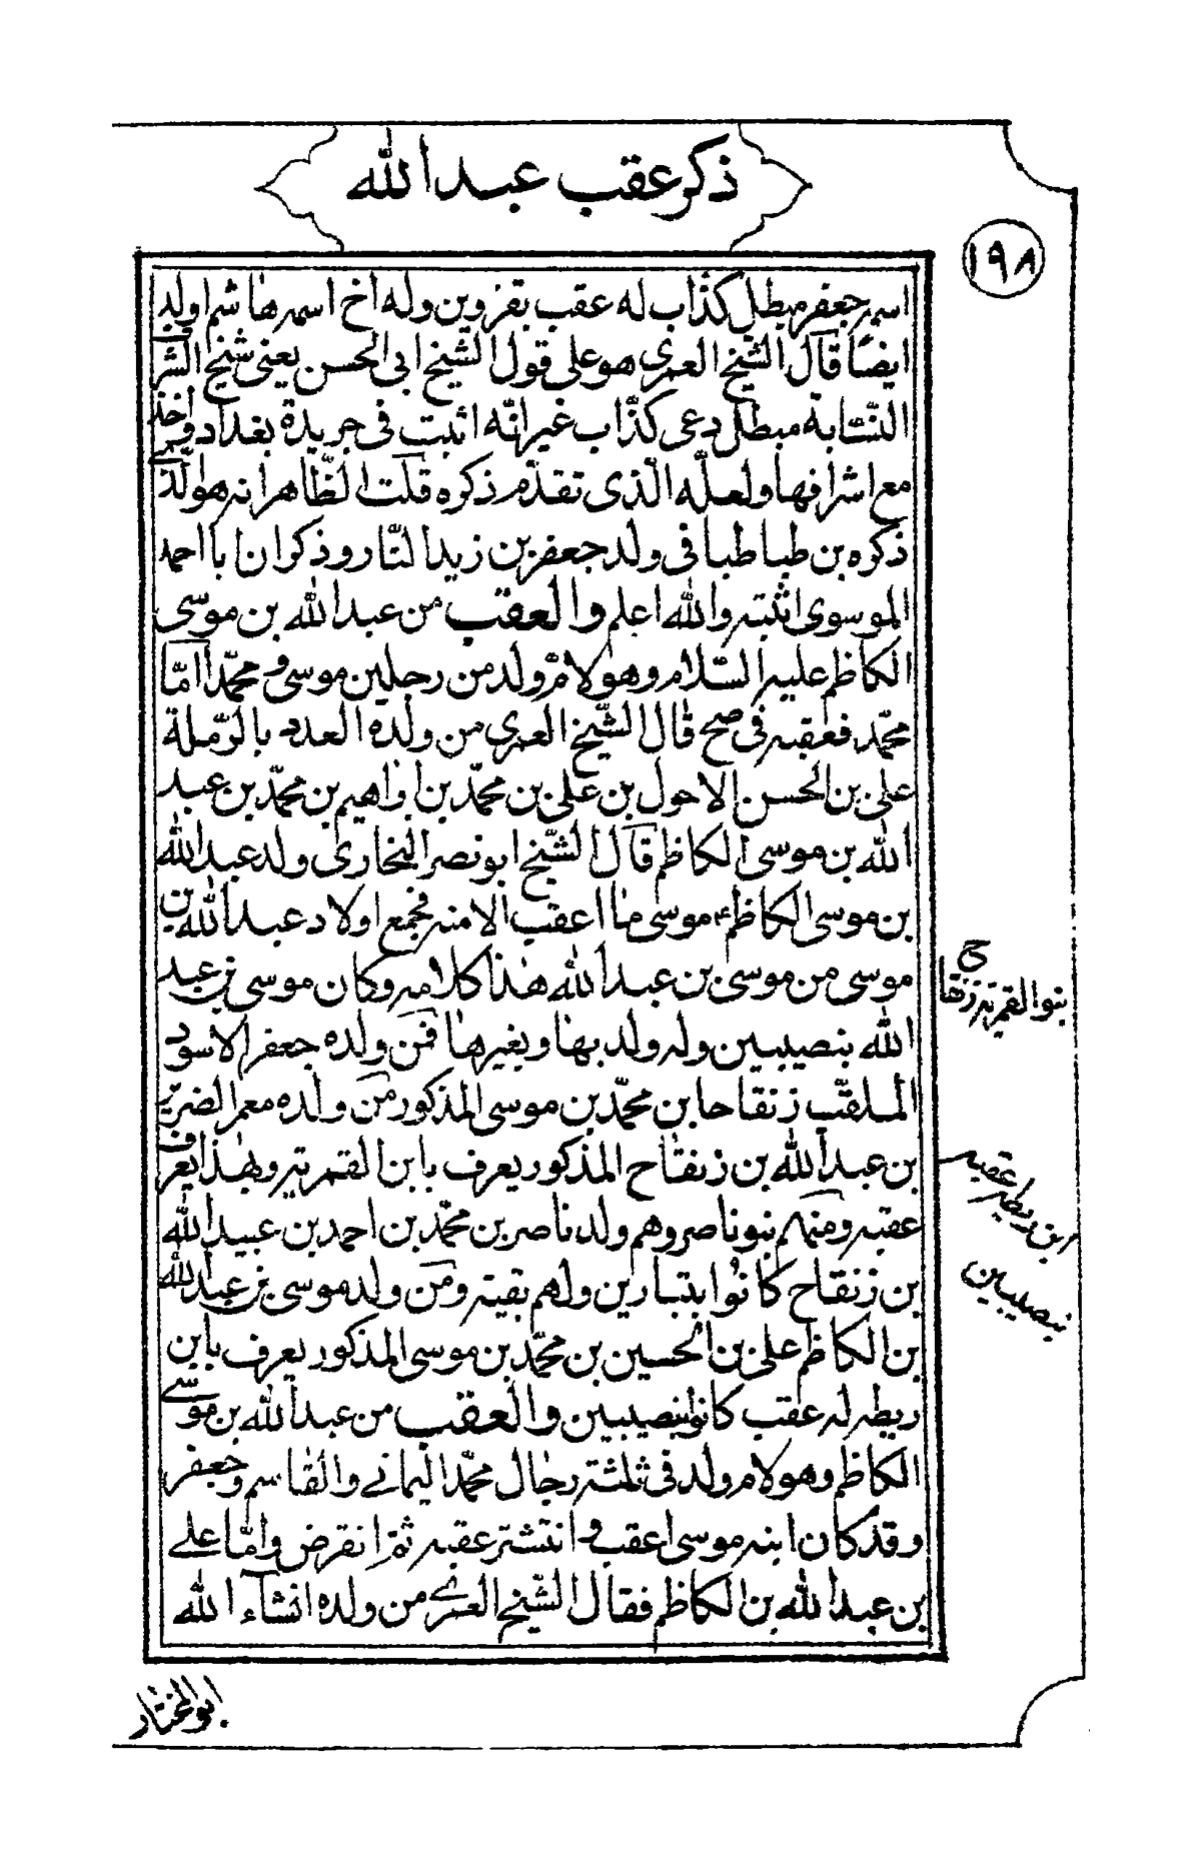 ذكر عقب عبد الله
١٩٨
اسمه جعفر مبطل كذّاب له عقب بقزوين وله اخ اسمه هاشم اولد
ايضًا قال الشيخ العمرى هو على قول الشيخ ابى الحسن يعنى شيخ الشرف
النسّابة مبطل دعى كذّاب غير انّه اثبت فى جريدة بغداد واخذ
مع اشرافها ولعلّه الّذى تقدّم ذكره قلت الظّاهر انه هو
ذكره بن طباطبا فى ولد جعفر بن زيد النّار وذكر ان با احمد
الموسوى اثبته والله اعلم والعقب من عبد الله بن موسى
الكاظم عليه السّلام وهو لام ولد من رجلين موسى و محمّد امّا
محمّد فعقبه فى صح قال الشّيخ العمرى من ولده العدد بالرّملة
على بن الحسن الاحول بن على بن محمّد بن ابراهيم بن محمّد بن عبد
الله بن موسى الكاظم قال الشّيخ ابو نصر البخارى ولد عبد الله
بن موسى الكاظم موسى ما اعقب الا منه فجمع اولاد عبد الله بن
موسى من موسى بن عبد الله هذا كلامه وكان موسى بن عبد
الله بنصيبين وله ولد بها وبغيرها فمن ولده جعفر الاسود
الملقّب زنقاحا بن محمّد بن موسى المذكور من ولده معمر الضرير
بن عبد الله بن زنقاح المذكور يعرف بابن القمريه وبهذا يعرف
عقبه ومنهم بنو ناصر وهم ولد ناصر بن محمّد بن احمد بن عبيد الله
بن زنقاح كانوا بتبارين ولهم بقية ومن ولد موسى بن عبد الله
بن الكاظم على بن الحسين بن محمّد بن موسى المذكور يعرف بابن
ريطه له عقب كانوا بنصيبين والعقب من عبد الله بن موسى
الكاظم وهو لام ولد فى ثلثة رجال محمّد اليمانى والقاسم وجعفر
وقد كان ابنه موسى اعقب و انتشر عقبه ثم انقرض وامّا على
بن عبد الله بن الكاظم فقال الشّيخ العمرى من ولده انشآء الله
بنو القمريه زنقاح
ابن ريطه عقبه
بنصيبين
ابو المختار